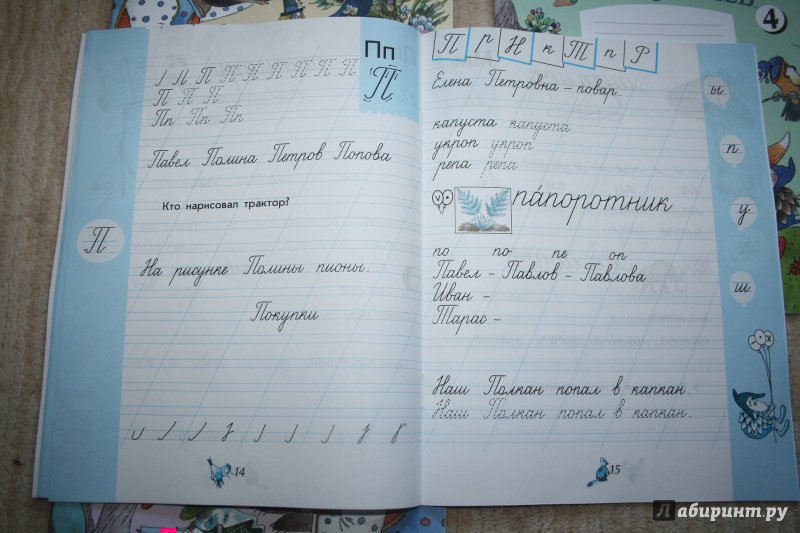 Пп
П П П П П П П П
П
П П П
Пп Пп Пп
Павел Полина Петров Попова
Кто нарисовал трактор?
П
На рисунке Полины пионы.
Покупки
14
П г Н к Т п Р
Елена Петровна – повар
капуста капуста
укроп укроп
репа репа
па́поротник
по по пе оп
Павел – Павлов – Павлова
Иван –
Тарас –
Наш Полкан попал в капкан.
Наш Полкан попал в капкан.
15
ы
п
у
ш
4
Лабиринт.ру